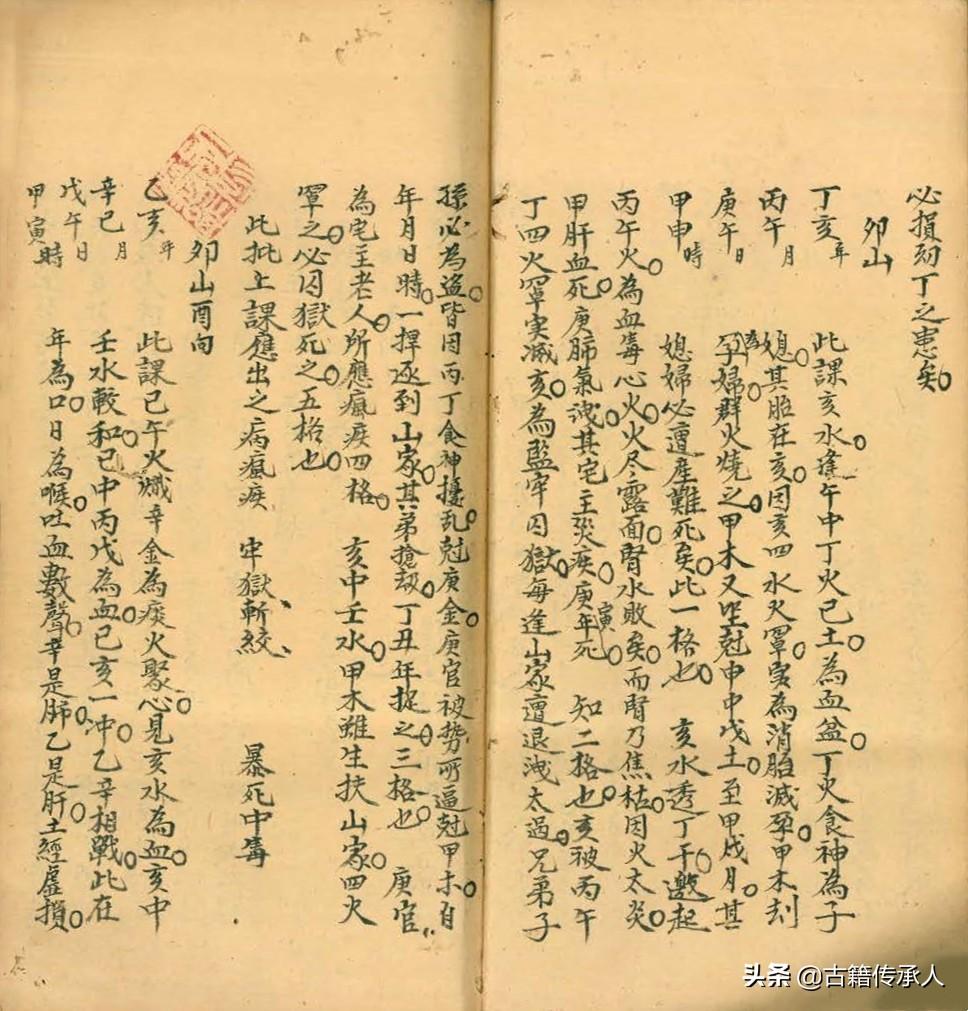 必損幼丁之患矣
卯山
丁亥年
丙午月
庚午日
甲申時
此課亥水逢午中丁火己土為血盆丁火食神為子
媳其胎在亥因亥四水火罩害為消胎滅孕甲木刻
為孕婦群火燒之甲木又坐尅申中戊土至甲戌月其
媳婦必遭產難死矣此一格也 亥水透丁干邀起
丙午火為血毒心火火尽露面腎水敗矣而腎乃焦枯因火太炎
甲肝血死庚肺氣洩其宅主災疾庚寅年死 知二格也亥被丙午
丁四火罩实滅亥為監牢囚獄每逢山家遭退洩太過兄弟子
孫必為盜皆因丙丁食神擾乱尅庚金庚官被势所逼尅甲木自
年月日時一捍逐到山家其弟搶刼丁丑年捉之三格也 庚官
為宅主老人所應瘋疾四格 亥中壬水甲木雖生扶山家四火
罩之必囚獄死之五格也
此批上課應出之病瘋疾 牢獄斬絞 暴死中毒
卯山酉向
乙亥年
辛巳月
戊午日
甲寅時
此課巳午火爍辛金為痰火聚心見亥水為血亥中
壬水較和巳中丙戊為血巳亥一冲乙辛相戰此在
年為口日為喉吐血數聲辛是肺乙是肝土經虛損
头条 @古籍传承人